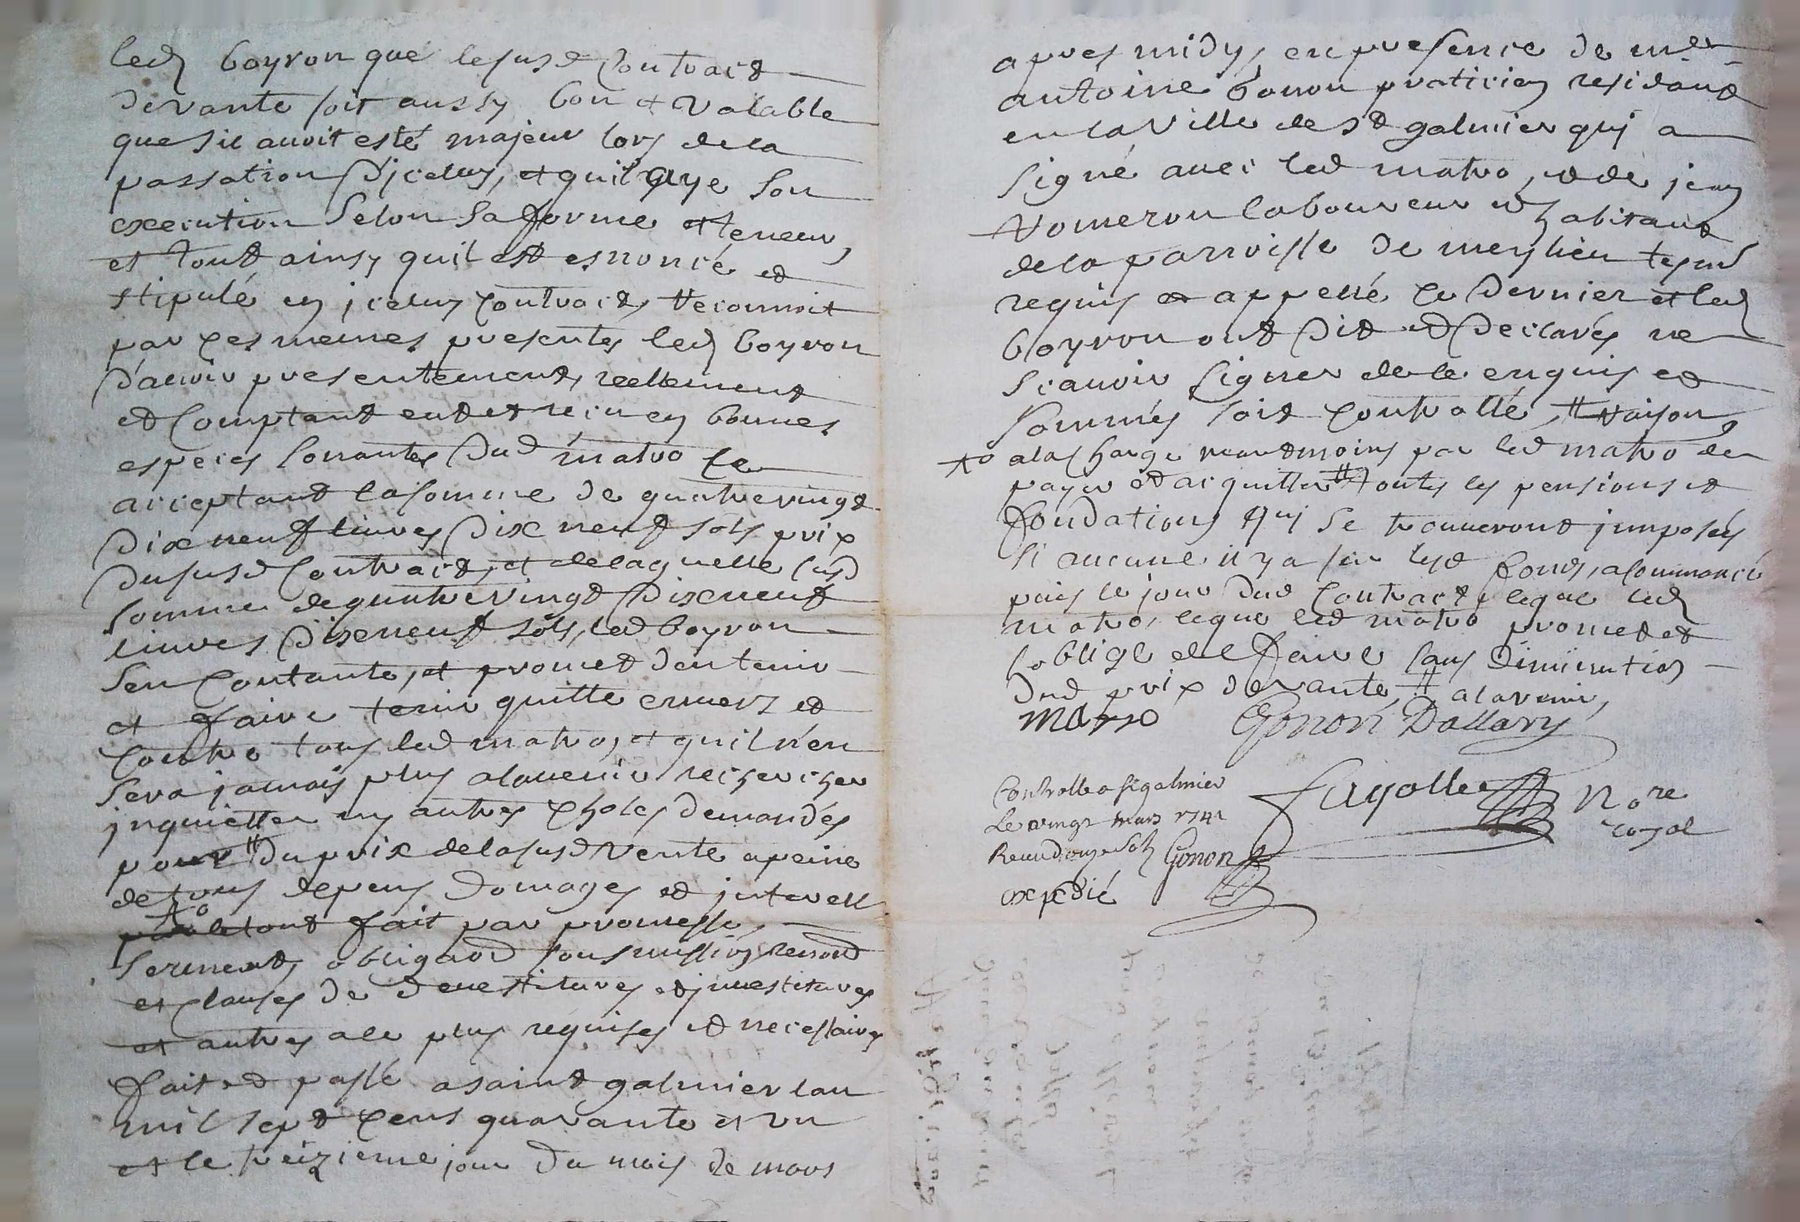 led boyron que le susd Contract
de vante soit aussy bon et valable
que sil avoit esté majeur lors de la
passation d'jceluy, et quil aye son
execution selon sa forme et teneur,
et tout ainsy quil est esnoncé et
stipulé en jceluy Contract, reconnoit
par ces memes presentes led boyron
d'avoir presentement, reellement
et Comptant eut et recu en bonnes
especes sonnantes dud matro ce
acceptant la somme de quatre vingt
dix neuf livres dix neuf sols prix
du susd Contract, et de laquelle susd
somme de quatre vingt dix neuf
livres dix neuf sols, led boyron
sen Contante, et promet den tenir
et faire tenir quitte envers et
Contre tous led matro, et quil n'en
sera jamais plus alavenir rechercher
jnquietter ny autres choses demandés
pour # du prix de la susd vente a peine
de tous depens domages et jnterest
le tout fait par promesse,
serment, obligaon soumission renond
et clauses de devestitures et jnvestitures
et autres a ce plus requises et necessaires
fait et passé a saint galmier lan
mil sept cens quarante et un
et le treizieme jour du mois de mars
apres midy, en presence de mer
antoine gonon praticien residant
en la Ville de st galmier quj a
signé avec led matro, et de jean
Vomeron laboureur et habitant
de la parroisse de meylieu tesm
requis et appellé ce dernier et led
boyron ont dit et declarés ne
scavoir signer de ce enquis et
sommés soit Controllé, # raison
a la charge neantmoins par led matro de
payer et acquitter # toutes les pensions et
fondations quj se trouveront jmposés
si aucune il y a sur lesd fonds, a Commancé
puis le jour dud Contract, leque led
matro, leque led matro promet et
soblige de faire sans diminution
dud prix de vante, # alavenir,
matro Gonon Dallary
Controllé a st galmier
Le vingt mars 1741
Receu douze sols Gonon
expedié
fayolle Nore
royal